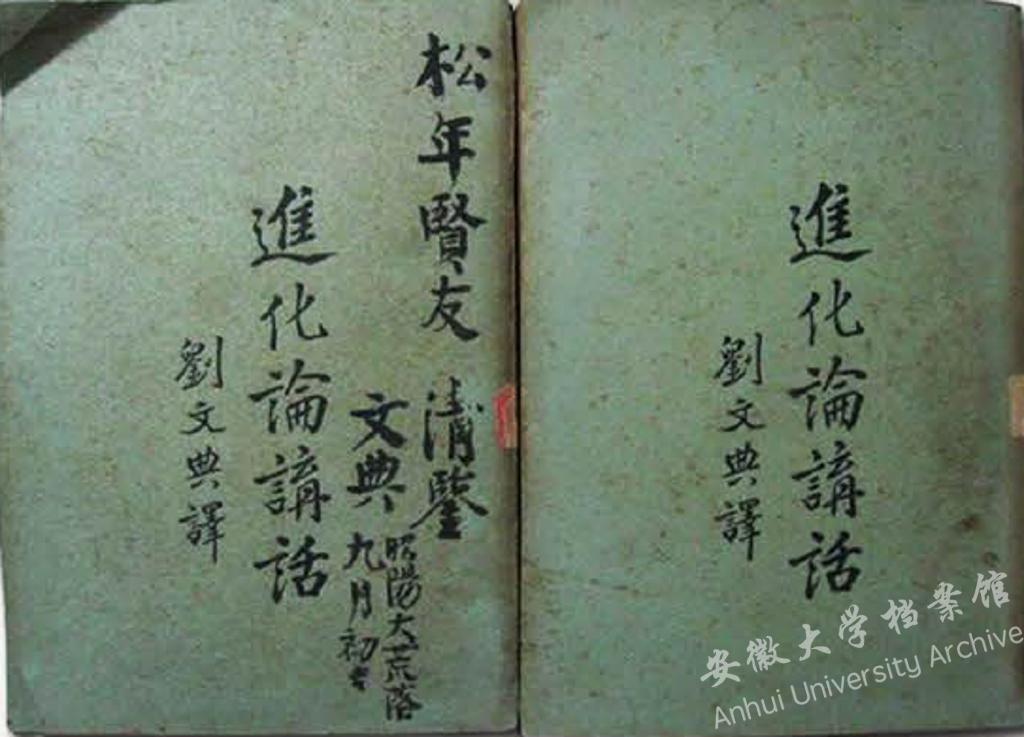 松年賢友 清鑒
文典
昭陽大荒落
九月初
進化論講話
劉文典譯
進化論講話
劉文典譯
安徽大学档案馆
Anhui University Archive